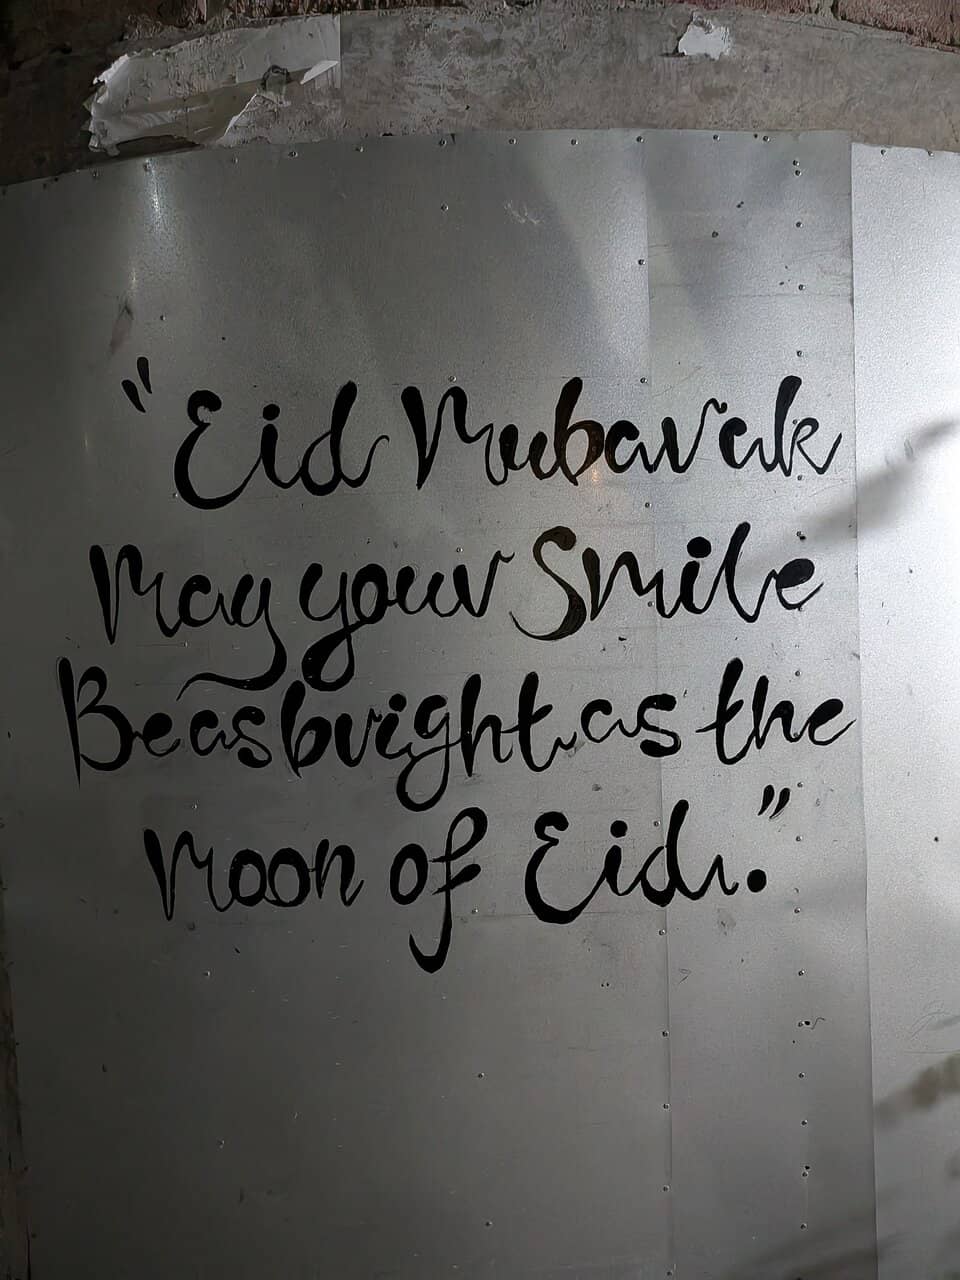 "Eid Mubarak
May your Smile
Be as bright as the
Moon of Eid."